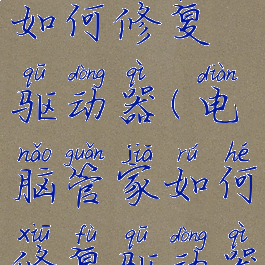 如何修复
qū dòng qì diàn
驱动器(电
nǎo guǎn jiā rú hé
脑管家如何
xiū fù qū dòng qì
修复驱动器